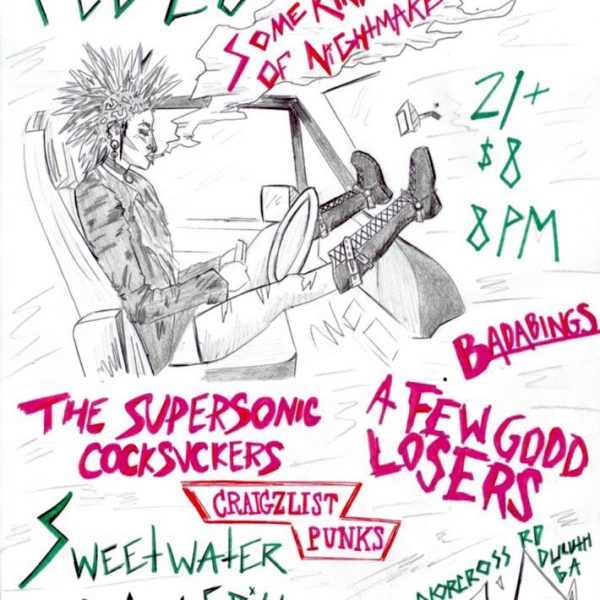 SOME KIN
OF NIGHTMARE
21+
$8
8PM
BADABINGS
THE SUPERSONIC
COCKSUCKERS
A FEW GODD
LOSERS
CRAIGZLIST
PUNKS
SWEETWATER
NORCROSS RD
DULUTH
GA